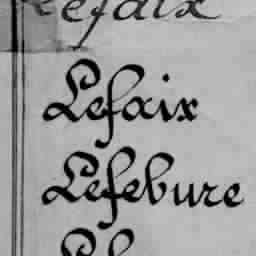 Lefaix
Lefaix
Lefebure